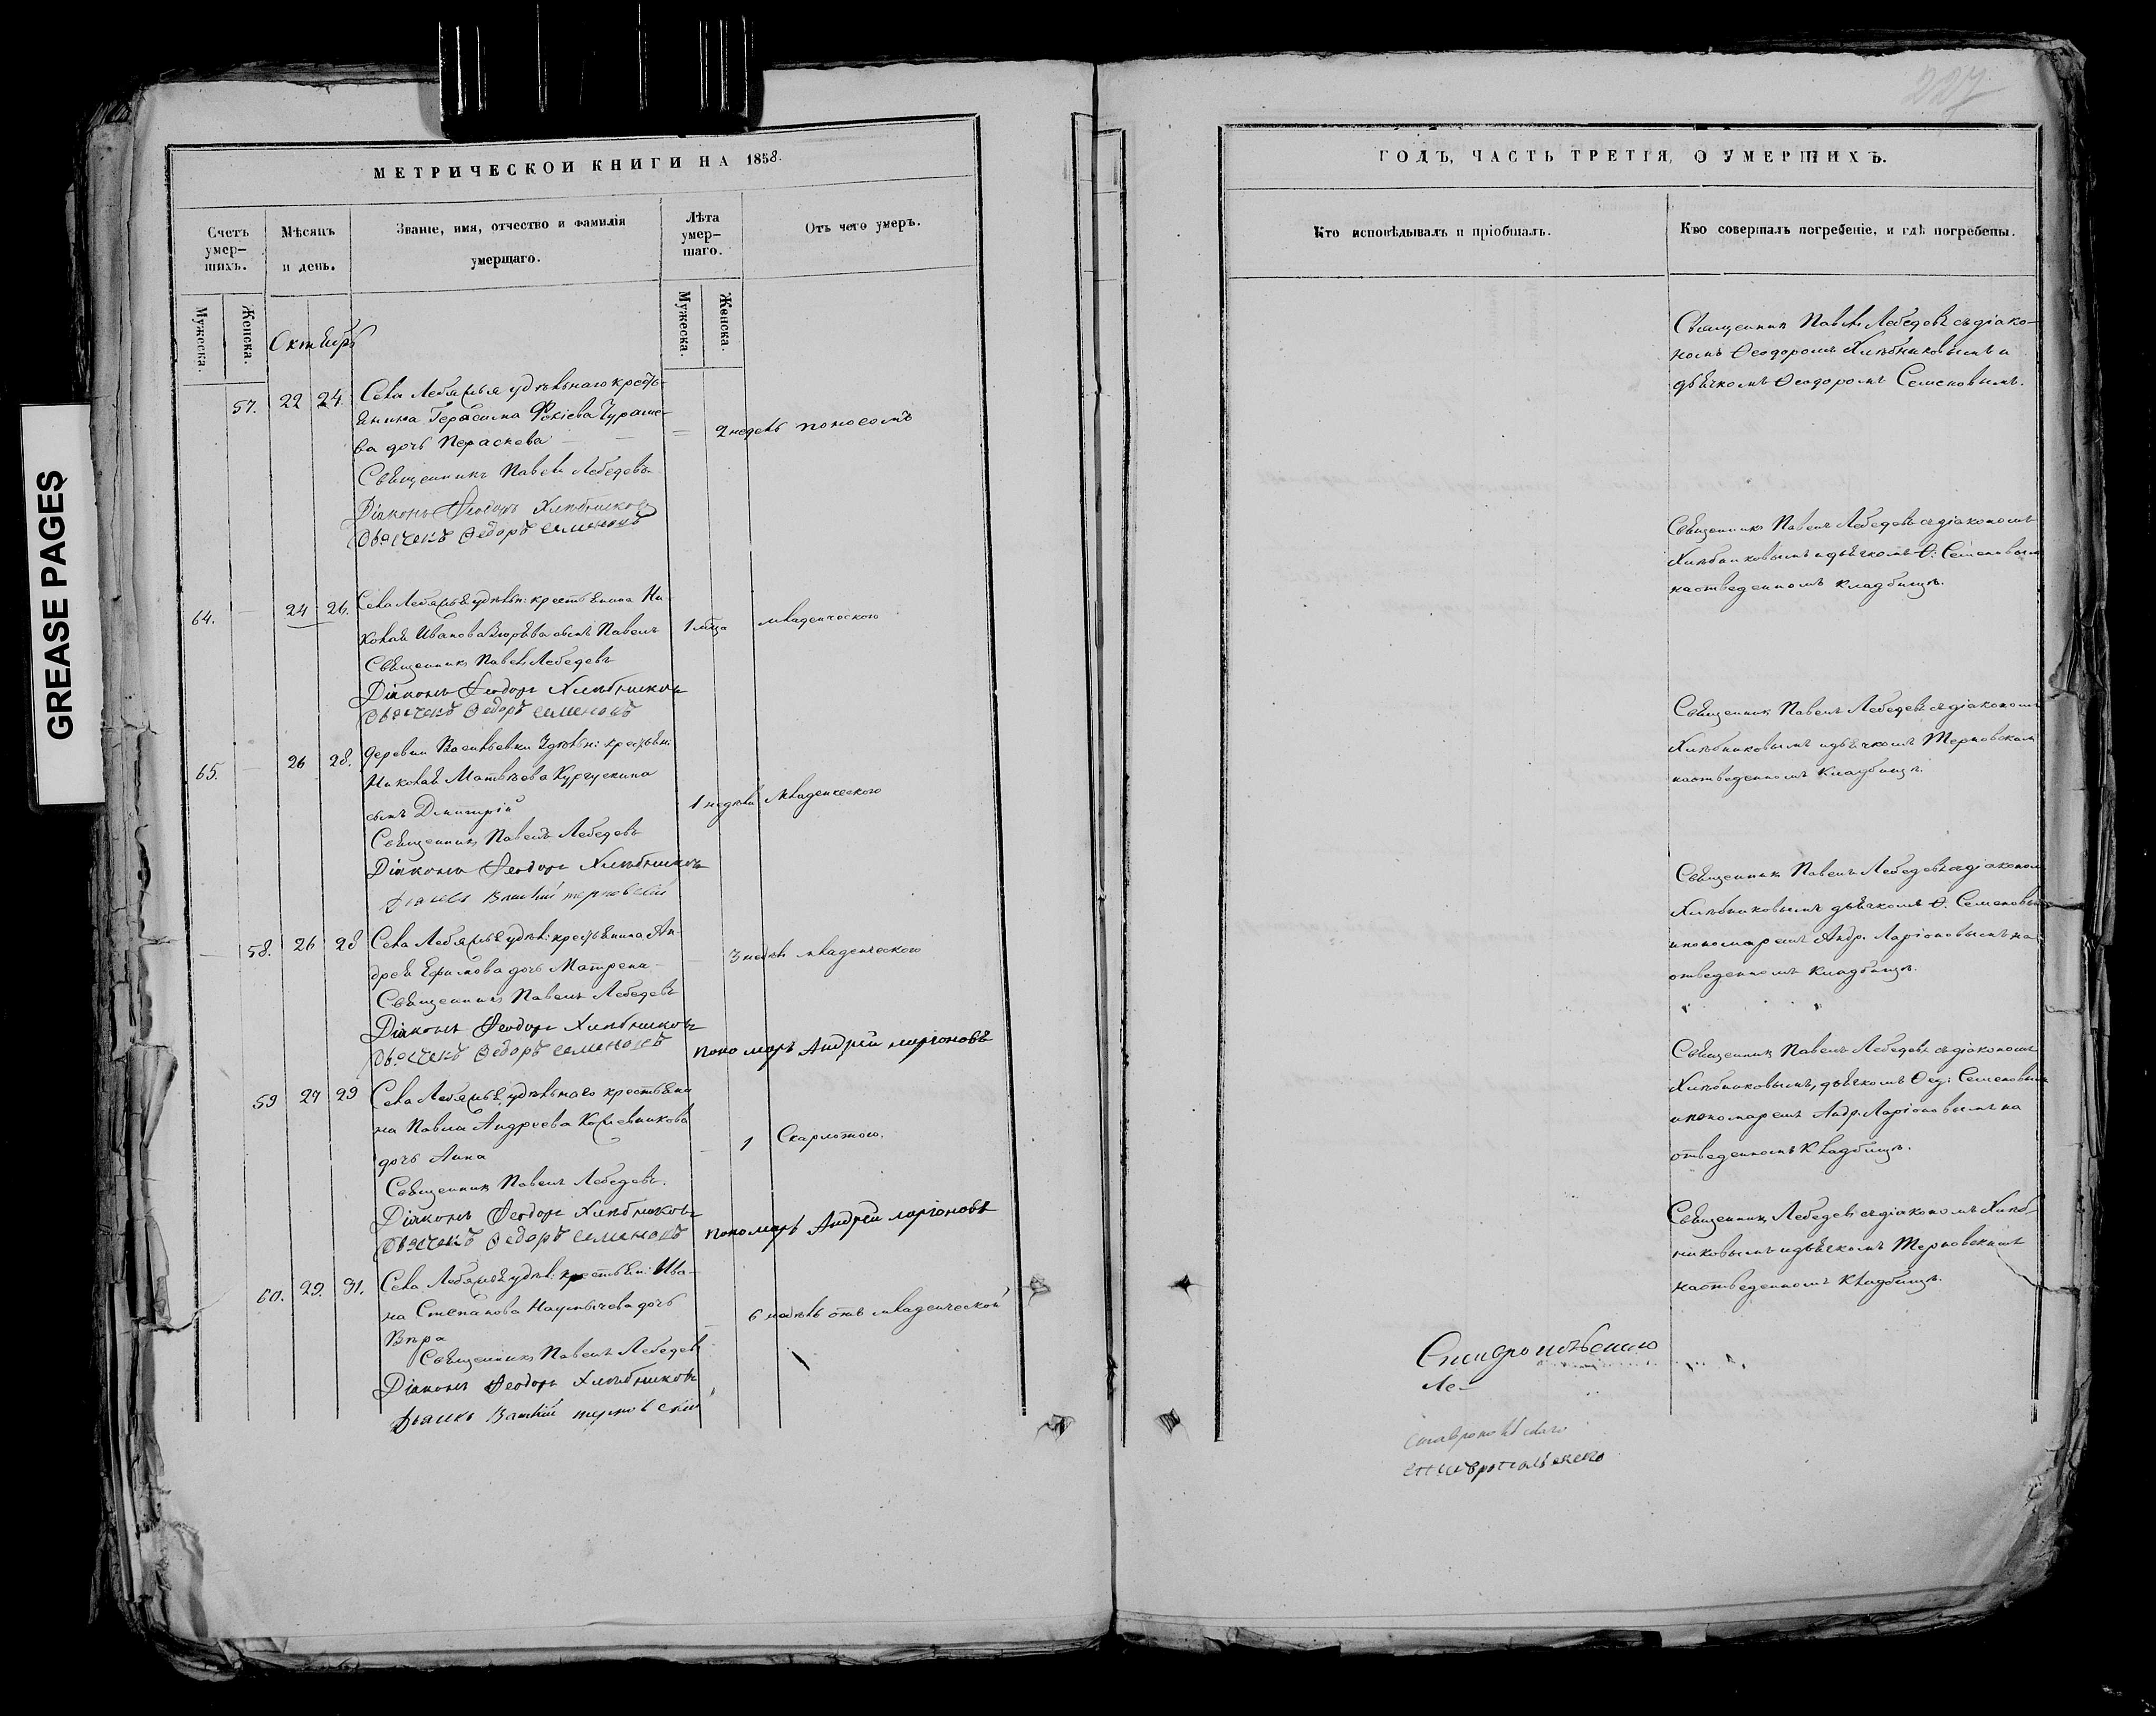 МЕТРИЧЕСКОЙ КНИГИ НА 1858.
Счетъ умер-шихъ.
Мѣсяцъ и день.
Званіе, имя, отчество и фамилія умершаго.
Лѣта умер-шаго.
Отъ чего умеръ.
Мужеска.
Женска.
Мужеска.
Женска.
Октябрь
57. 22 24 Села Лебяжья удѣльнаго кресть-
янина Герасима Фокіева
ва дочь Параскева 2 недѣль поносомъ
Священникъ Павелъ Лебедевъ
Діаконъ Феодоръ Хлѣбниковъ
Дьячекъ Федоръ Семеновъ
64. 24 26. Села Лебяжья удѣльн: крестьянина Ни-
колая Иванова сынъ Павелъ 1 мѣца младенческого
Священникъ Павелъ Лебедевъ
Діаконъ Феодоръ Хлѣбниковъ
Дьячекъ Федоръ Семеновъ
65. 26 28. деревни Васильевки Удѣльн: крестьян:
Николая Матвѣева Кургускина
сынъ Димитрій 1 недѣли младенческого
Священникъ Павелъ Лебедевъ
Діаконъ Феодоръ Хлѣбниковъ
Дьячекъ терновскій
58. 26 28 Села Лебяжья удѣл: крестьянина Ан-
дрея Ефимова дочь Матрена 3 недѣль младенческого
Священникъ Павелъ Лебедевъ
Діаконъ Феодоръ Хлѣбниковъ
Дьячекъ Федоръ Семеновъ пономарь Андрей ларіоновъ
59 27 29 Села Лебяжья удѣльнаго крестьяни
на Павла Андреева Кожевникова
дочь Анна 1 Скарлатною.
Священникъ Павелъ Лебедевъ.
Діаконъ Феодоръ Хлѣбниковъ
Дьячекъ Федоръ Семеновъ пономарь Андрей ларіоновъ
60. 29. 31. Села Лебяжья удѣл: крестьян: Ива-
на Степанова Наумычева дочь
Вѣра 6 недѣль отъ младенческой
Священникъ Павелъ Лебедевъ
Діаконъ Феодоръ Хлѣбниковъ
Дьячекъ терновскій
227
ГОДЪ, ЧАСТЬ ТРЕТІЯ, О УМЕРШИХЪ.
Кто исповѣдывалъ и пріобщалъ.
Кто совершалъ погребеніе, и гдѣ погребены.
Священникъ Павелъ Лебедевъ съ діако-
номъ Феодоромъ Хлѣбниковымъ и
дьячкомъ Феодоромъ Семеновымъ.
Священникъ Павелъ Лебедевъ съ діакономъ
Хлѣбниковымъ и дьячкомъ Ѳ: Семеновымъ
на отведенномъ кладбищѣ.
Священникъ Павелъ Лебедевъ съ діакономъ
Хлѣбниковымъ и дьячкомъ Терновскимъ
на отведенномъ кладбищѣ.
Священникъ Павелъ Лебедевъ съ діакономъ
Хлѣбниковымъ дьячкомъ Ѳ. Семеновымъ
и пономаремъ Андр. Ларіоновымъ на
отведенномъ кладбищѣ.
Священникъ Павелъ Лебедевъ съ діакономъ
Хлѣбниковымъ, дьячкомъ Ѳед: Семеновымъ
и пономаремъ Андр. Ларіоновымъ на
отведенномъ кладбищѣ.
Священникъ Лебедевъ съ діакономъ Хлѣб-
никовымъ и дьячкомъ Терновскимъ
на отведенномъ кладбищѣ.
Ле-
ставропольскаго
ставропольскаго
GREASE PAGES